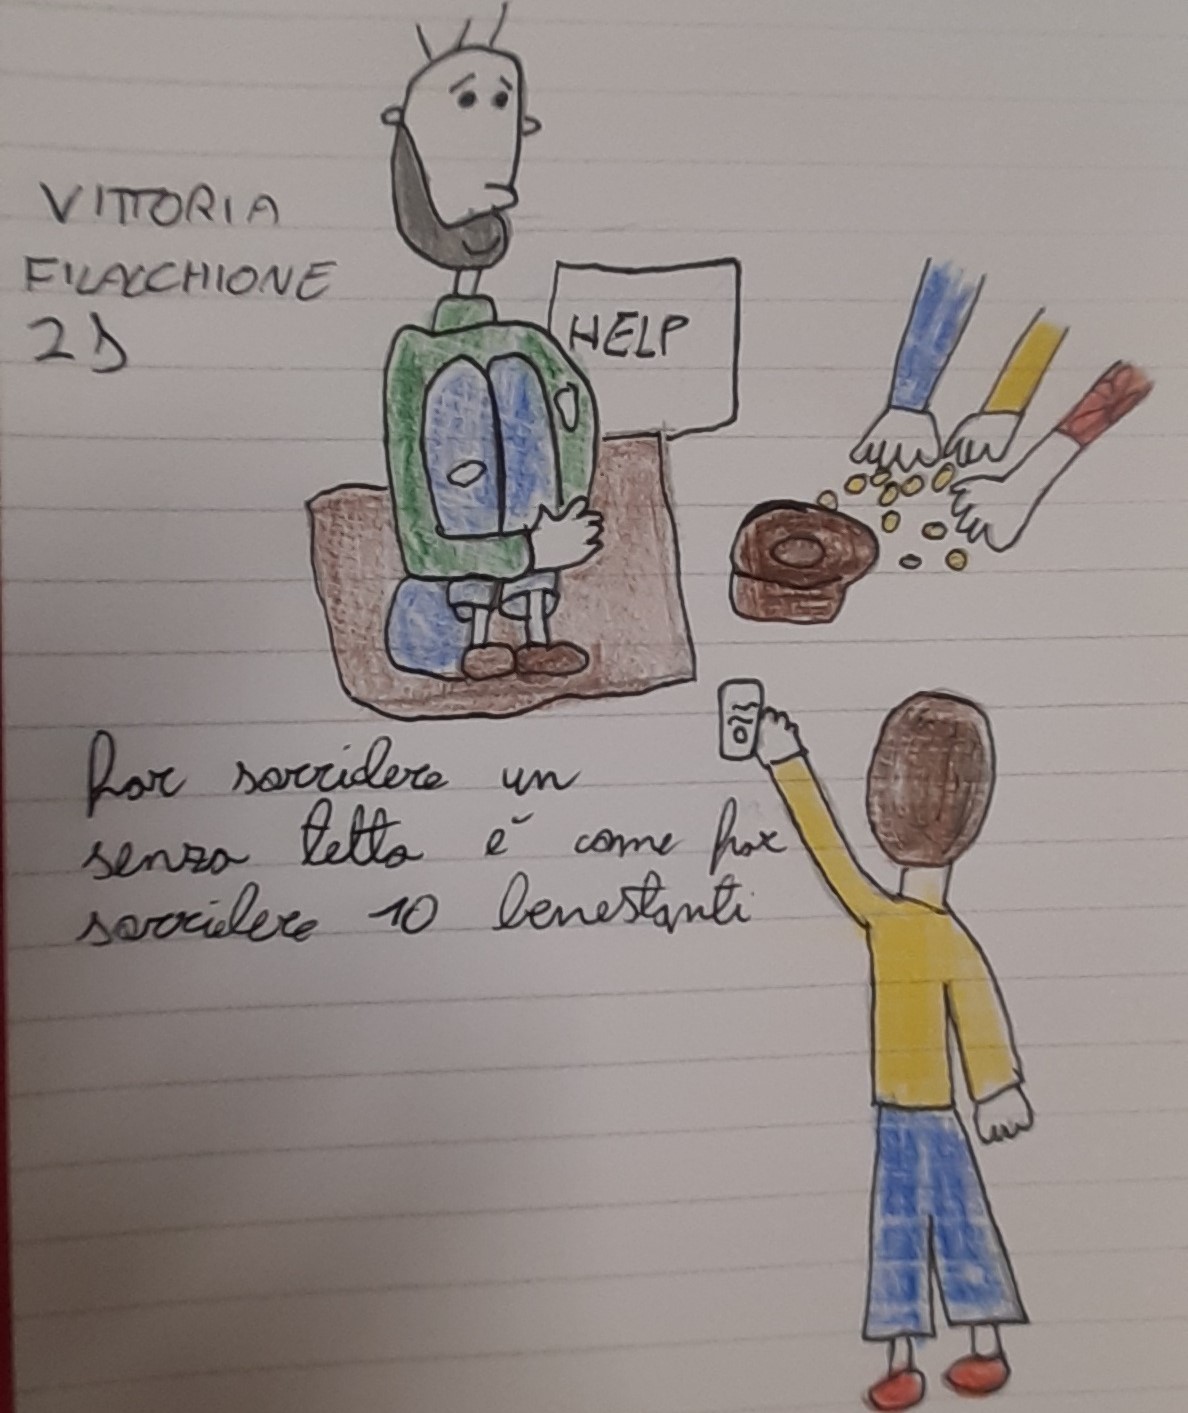 VITTORIA
FILACCHIONE
2D
HELP
far sorridere un
senza tetto è come far
sorridere 10 benestanti